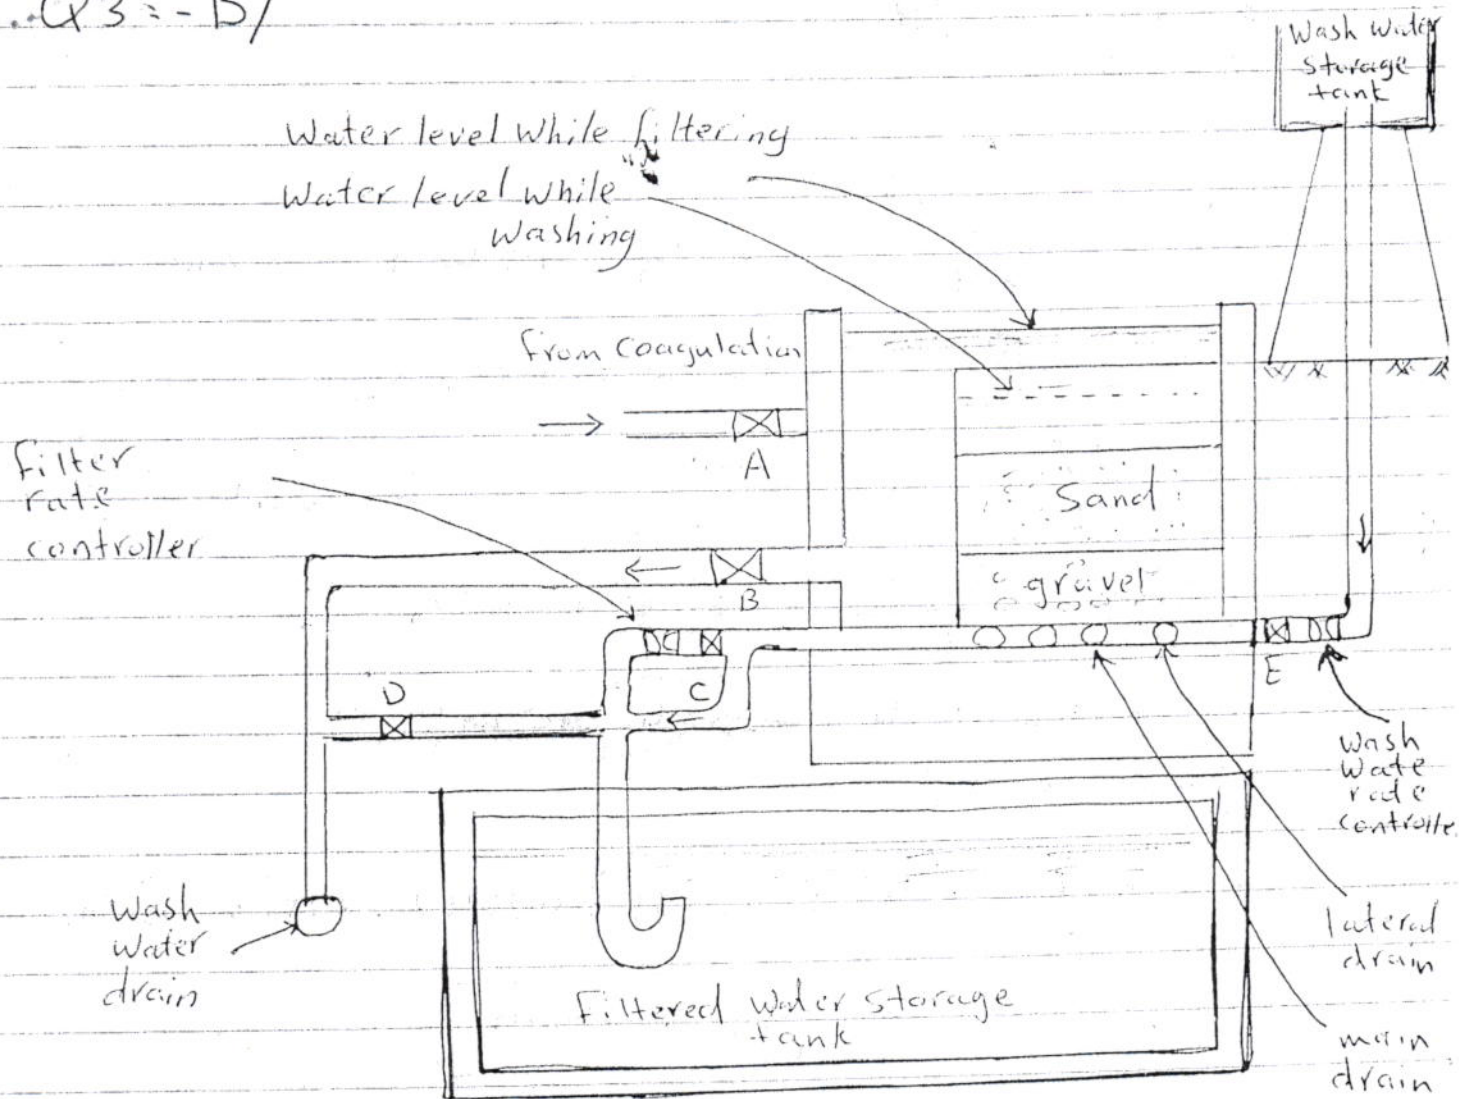 Q3:- B/
Wash Water
storage
tank
Water level While filtering
Water level While
Washing
from coagulation
A
filter
rate
controller
Sand
gravel
B
C
D
E
Wash
Wate
rate
controlle
Wash
water
drain
lateral
drain
Filtered Water storage
tank
main
drain